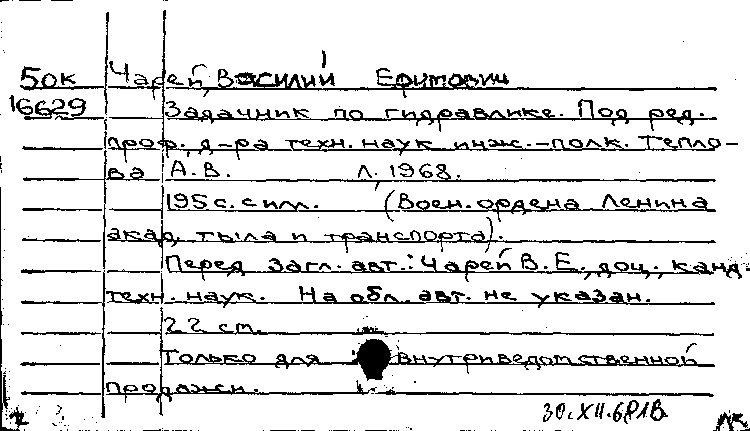 50к Чарей, Василий Ефимович
16629 Задачник по гидравлике. Под ред.
проф., д-ра техн. наук инж.-полк. Тепло-
ва А.В. Л., 1968.
195 с. с илл. (Воен. ордена Ленина
акад. тыла и транспорта).
Перед загл. авт.: Чарей В.Е., доц., канд.
техн. наук. На обл. авт. не указан.
22 см.
Только для внутриведомственной
продажи.
30.XII.68